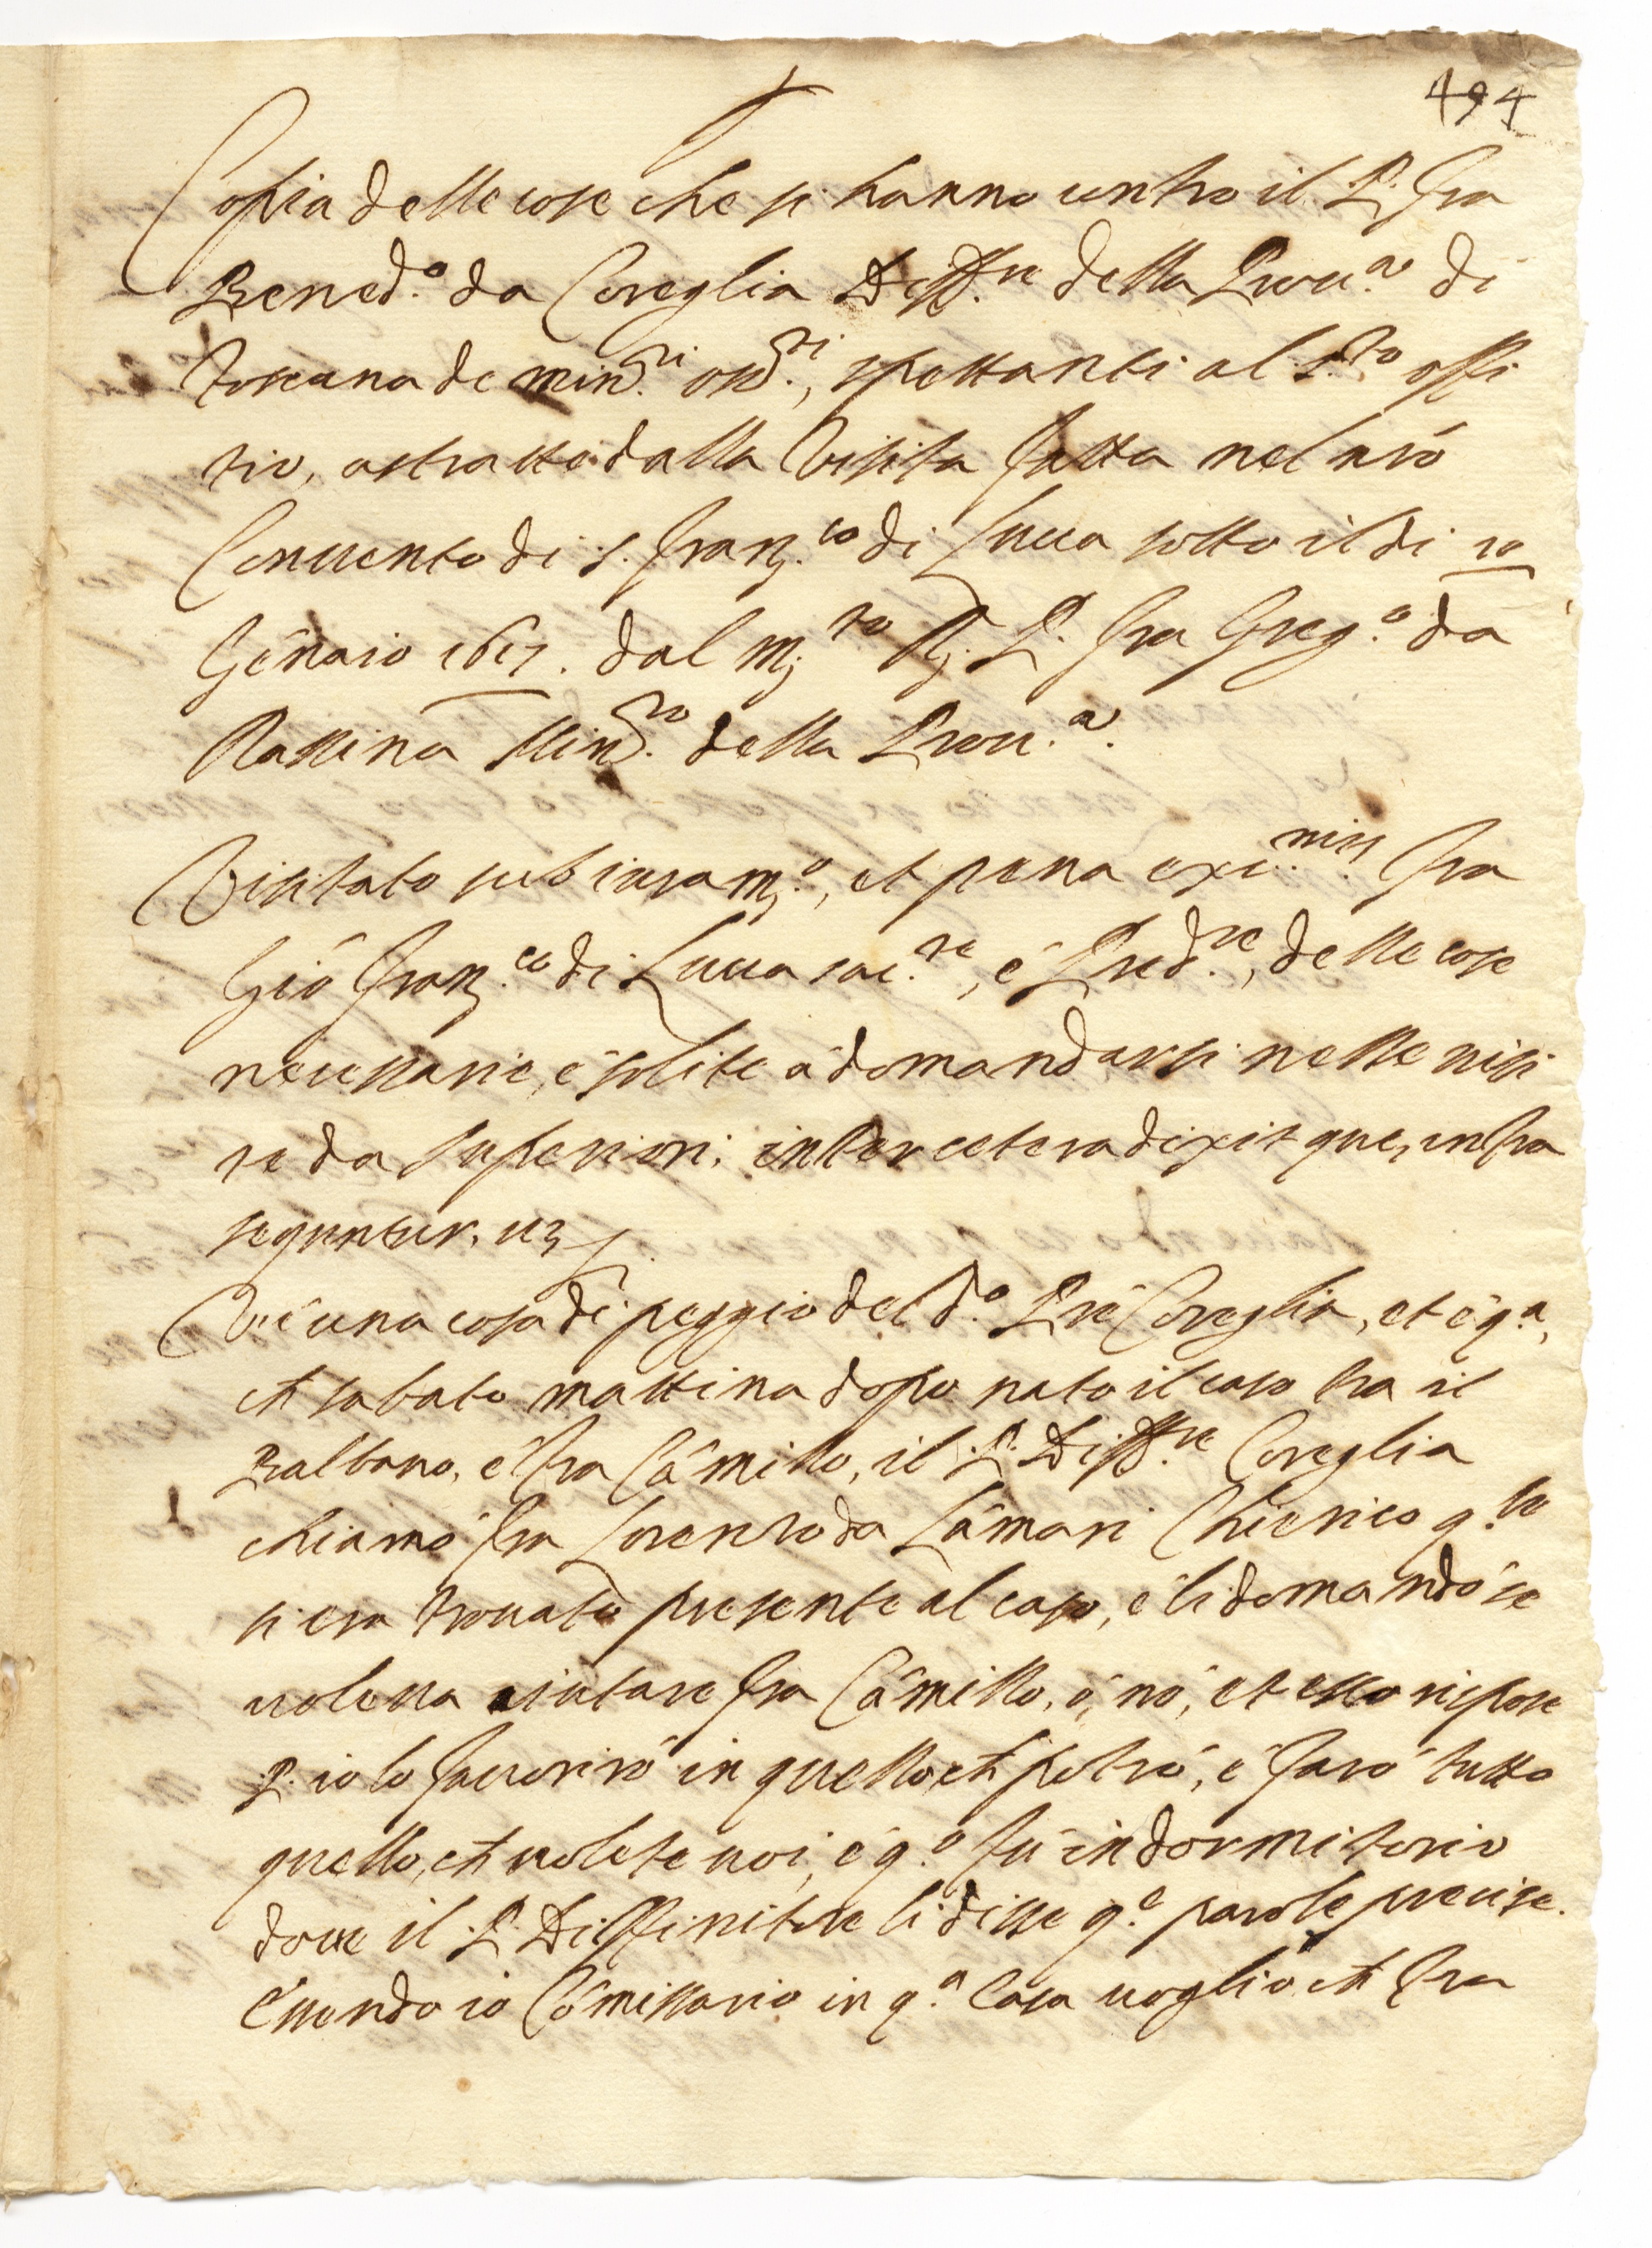 494
Copia delle cose che si hanno contro il P. fra
Bened.º da Coreglia Diff.re della Prou.a di
Toscana de min.ri oss.ti, spettanti al S.to offi
tio, astratto dalla Visita fatta nel nr̃o
Conuento di S. Franc.co di Lucca sotto il di 10
Gẽnaio 1617. dal m.to R. P. fra Greg.º da
Rassina Min.ro della Prou.a.
Visitato sub iuram.º, et pena exc.nis fra
Giõ Franc.co di Lucca sac.te, è Pred.re, delle cose
necessarie, è solite à domandarsi nelle uisi
te da superiori; inter cetera dixit que, infra
sequntur. uz
Vi è una cosa di peggio del d.º Prẽ Coreglia, et è q.a,
ch̃ sabato mattina dopo nato il caso tra il
Balbano, è fra Cãmillo, il P. Diff.re Coreglia
chiamò fra Lorenzo da Lãmari Chierico q.le
si era trouato presente al caso, è li domandò se
uoleua aiutare fra Cãmillo, ò, nò, et esso rispose
P. io lo fauorirò in quello, ch̃ potrò, è farò tutto
quello, ch̃ uolete uoi, è q.º fù in dormitorio
doue il P. Diffinitore li disse q.e parole precise.
Essendo io Cõmissario in q.a Casa uoglio, ch̃ fra